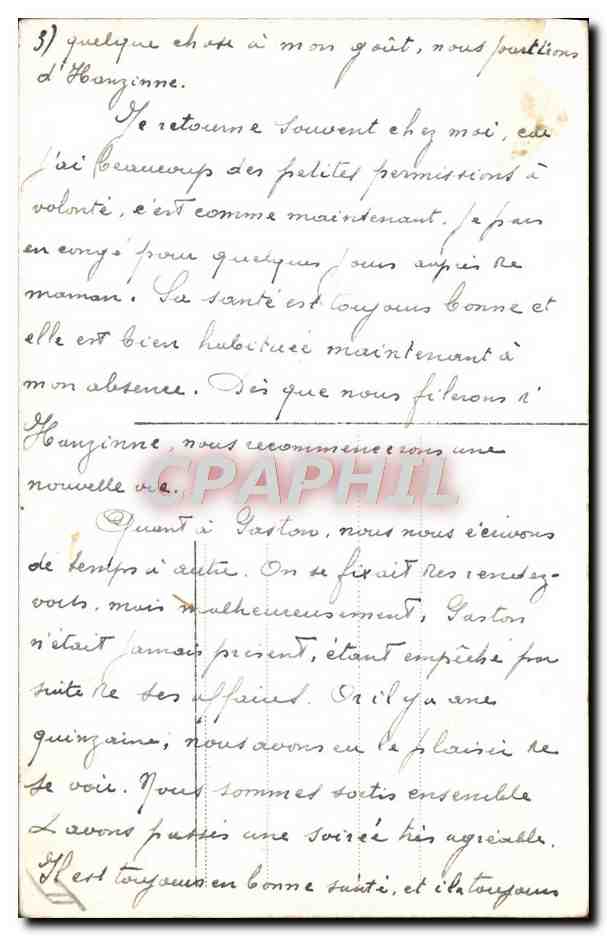 3) quelque chose à mon goût, nous partirons
d'Hanzinne.
Je retourne souvent chez moi, car
j'ai beaucoup des petites permissions à
volonté, c'est comme maintenant. Je pars
en congé pour quelques jours auprès de
maman. Sa santé est toujours bonne et
elle est bien habituée maintenant à
mon absence. Dès que nous filerons d'
Hanzinne, nous recommencerons une
nouvelle vie.
CPAPHIL
Quant à Gaston, nous nous écrivons
de temps à autre. On se fixait des rendez-
vous, mais malheureusement, Gaston
n'était jamais présent, étant empêché par
suite de ses affaires. Or il y a une
quinzaine, nous avons eu le plaisir de
se voir. Nous sommes sortis ensemble
& avons passés une soirée très agréable.
Il est toujours en bonne santé, et il a toujours